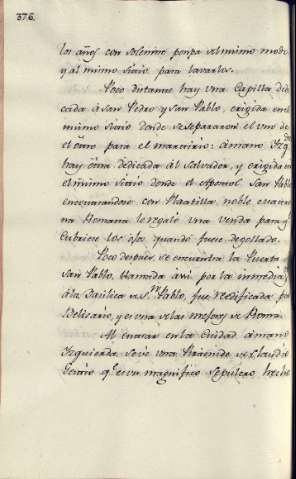 376.
los años con solemne ponpa del mismo modo
y al mismo sitio para lavarlos.
Poco distante hay una Capilla dedi
cada à San Pedro y San Pablo, erigida en el
mismo sitio donde se separaron el uno de
el otro para el martirio: à mano Izqda
hay otra dedicada al Salvador, y erigida en
el mismo sitio donde el Apostol San Pablo
encontrandose con Plautilla, noble matro
na Romana le regaló una venda para q
cubriese los ojos quando fuese degollado.
Poco despues se encuentra la Puerta de
San Pablo, llamada así por la inmediacion
à la Basilica de Sn Pablo, fue reedificada por
Belisario, y es una de las mejores de Roma.
Al entrar en la Ciudad à mano
Izquierda se vé una Piramide de
Cestio qe es un magnifico Sepulcro, hecho